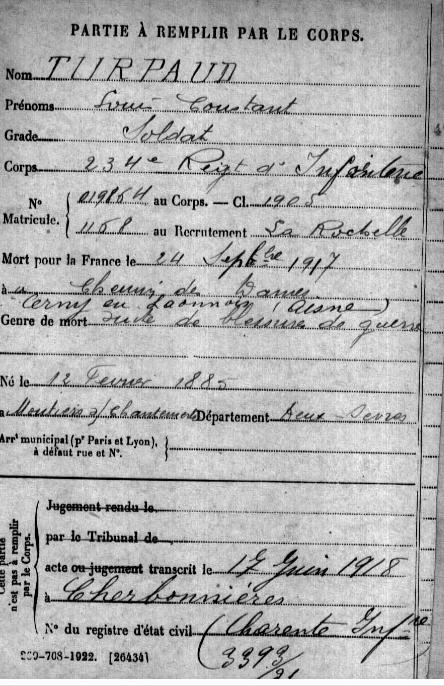 PARTIE À REMPLIR PAR LE CORPS.
Nom TURPAUD
Prénoms Louis Constant
Grade Soldat
Corps 234e Regt d'Infanterie
N° Matricule. { 019864 au Corps. — Cl. 1905
1168 au Recrutement La Rochelle
Mort pour la France le 24 Septbre 1917
à Chemin des Dames
Cerny en Laonnois (Aisne)
Genre de mort suite de blessures de guerre
Né le 12 Fevrier 1885
à Moutiers s/ Chantemerle Département Deux-Sevres
Arrt municipal (pr Paris et Lyon), à défaut rue et N°. }
Cette partie n'est pas à remplir par le Corps.
Jugement rendu le
par le Tribunal de
acte ou jugement transcrit le 17 Juin 1918
à Cherbonnières
N° du registre d'état civil (Charente Infre
3393/21
-708-1922. [26434]